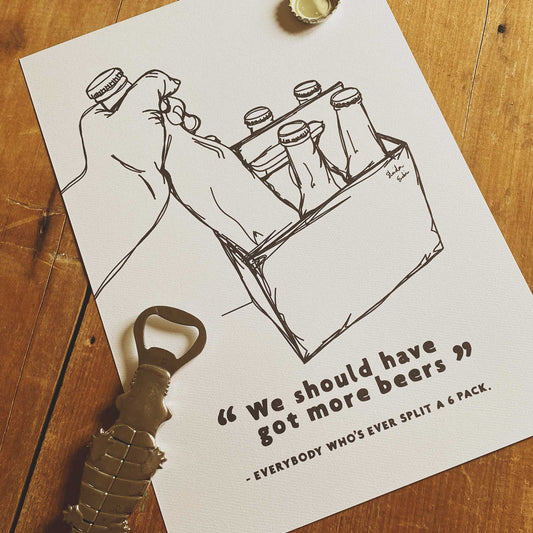 “ We should have
got more beers ”
- EVERYBODY WHO'S EVER SPLIT A 6 PACK.